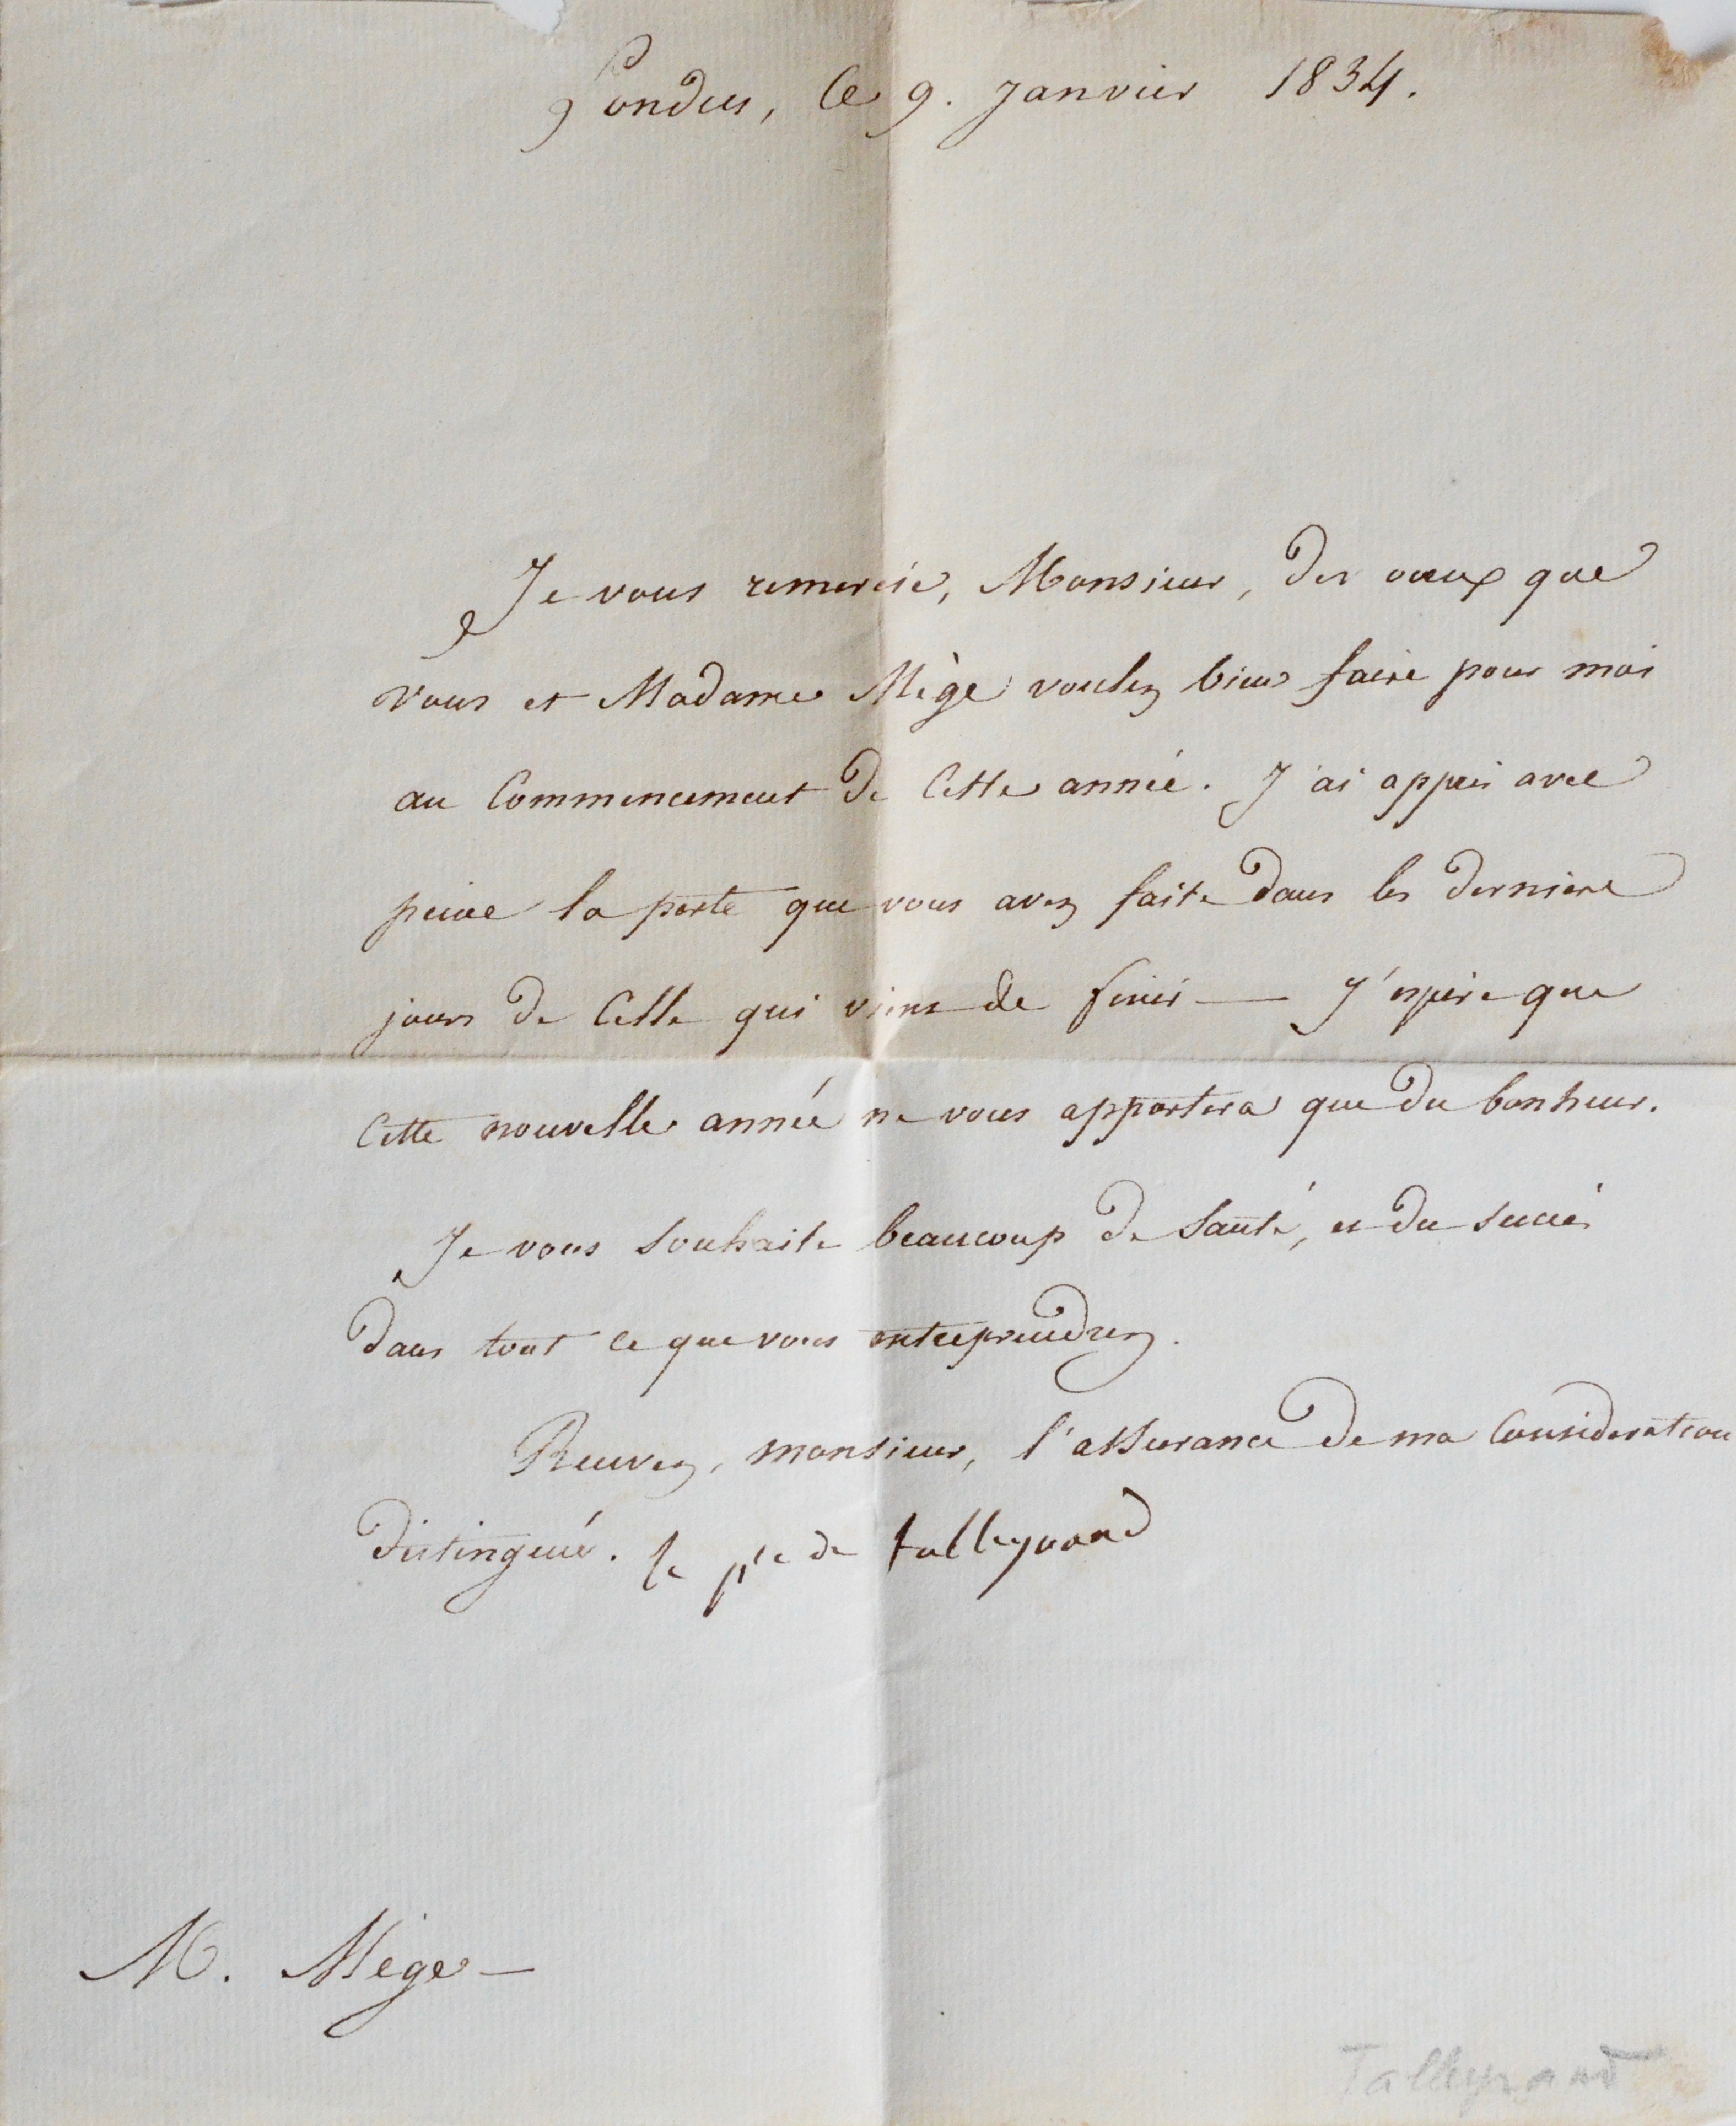 Londres, le 9. Janvier 1834.
Je vous remercie, Monsieur, des vœux que
vous et Madame Mège voulez bien faire pour moi
au Commencement de Cette année. J'ai appris avec
peine la perte que vous avez faite dans les derniers
jours de Celle qui vient de finir — J'espère que
Cette nouvelle année ne vous apportera que du bonheur.
Je vous souhaite beaucoup de santé, et du succès
dans tout ce que vous entreprendrez.
Recevez, monsieur, l'assurance de ma Consideration
distinguée. le p^ce de talleyrand
M. Mège —
Talleyrand